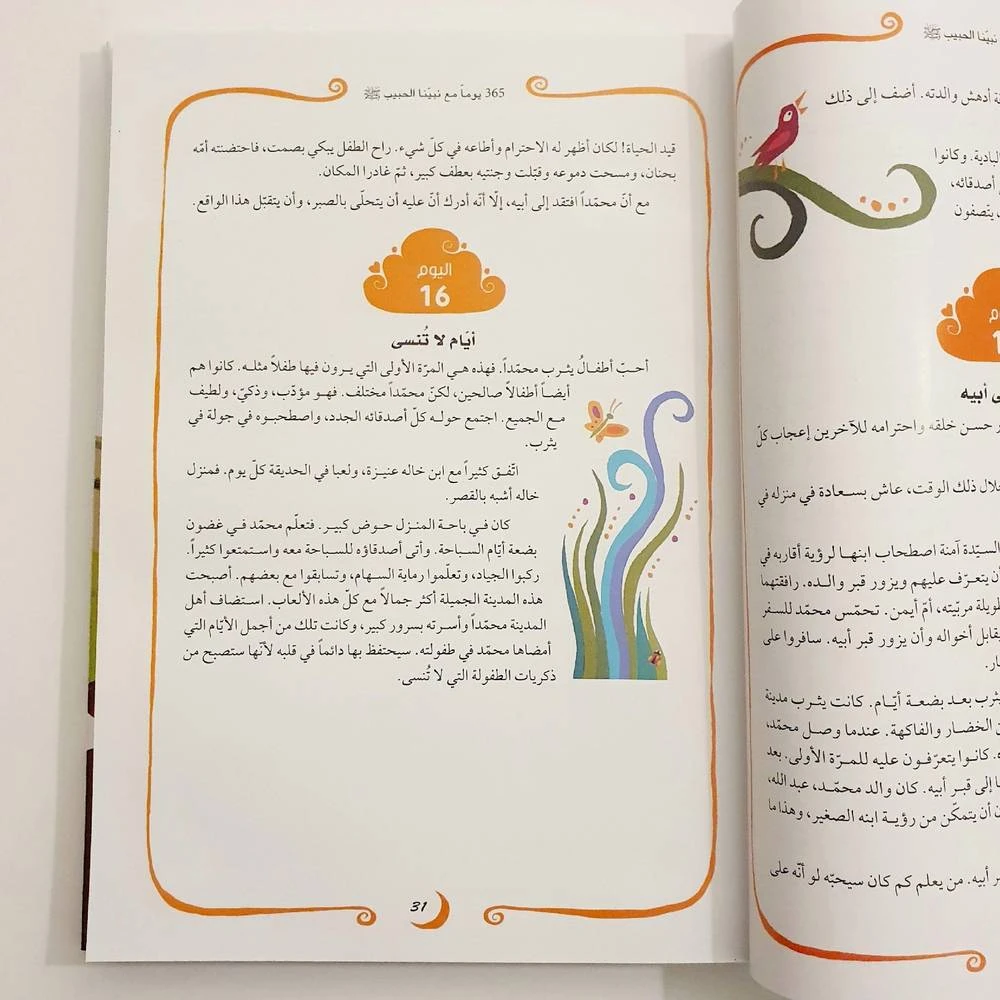 نبيّنا الحبيب ﷺ
أدهش والدته. أضف إلى ذلك
البادية. وكانوا
أصدقائه،
يتّصفون
أبيه
حسن خلقه واحترامه للآخرين إعجاب كلّ
خلال ذلك الوقت، عاش بسعادة في منزله في
السيّدة آمنة اصطحاب ابنها لرؤية أقاربه في
أن يتعرّف عليهم ويزور قبر والده. رافقتهما
طويلة مربّيته، أمّ أيمن. تحمّس محمّد للسفر
يقابل أخواله وأن يزور قبر أبيه. سافروا على
يثرب بعد بضعة أيّام. كانت يثرب مدينة
الخضار والفاكهة. عندما وصل محمّد،
كانوا يتعرّفون عليه للمرّة الأولى. بعد
إلى قبر أبيه. كان والد محمّد، عبد الله،
أن يتمكّن من رؤية ابنه الصغير، وهذا ما
أبيه. من يعلم كم كان سيحبّه لو أنّه على
365 يوماً مع نبيّنا الحبيب ﷺ
قيد الحياة! لكان أظهر له الاحترام وأطاعه في كلّ شيء. راح الطفل يبكي بصمت، فاحتضنته أمّه
بحنان، ومسحت دموعه وقبّلت وجنتيه بعطف كبير، ثمّ غادرا المكان.
مع أنّ محمّداً افتقد إلى أبيه، إلّا أنّه أدرك أنّ عليه أن يتحلّى بالصبر، وأن يتقبّل هذا الواقع.
اليوم
16
أيّام لا تُنسى
أحبّ أطفالُ يثرب محمّداً. فهذه هي المرّة الأولى التي يرون فيها طفلاً مثله. كانوا هم
أيضاً أطفالاً صالحين، لكنّ محمّداً مختلف. فهو مؤدّب، وذكيّ، ولطيف
مع الجميع. اجتمع حوله كلّ أصدقائه الجدد، واصطحبوه في جولة في
يثرب.
اتّفق كثيراً مع ابن خاله عنيزة، ولعبا في الحديقة كلّ يوم. فمنزل
خاله أشبه بالقصر.
كان في باحة المنزل حوض كبير. فتعلّم محمّد في غضون
بضعة أيّام السباحة. وأتى أصدقاؤه للسباحة معه واستمتعوا كثيراً.
ركبوا الجياد، وتعلّموا رماية السهام، وتسابقوا مع بعضهم. أصبحت
هذه المدينة الجميلة أكثر جمالاً مع كلّ هذه الألعاب. استضاف أهل
المدينة محمّداً وأسرته بسرور كبير، وكانت تلك من أجمل الأيّام التي
أمضاها محمّد في طفولته. سيحتفظ بها دائماً في قلبه لأنّها ستصبح من
ذكريات الطفولة التي لا تُنسى.
31